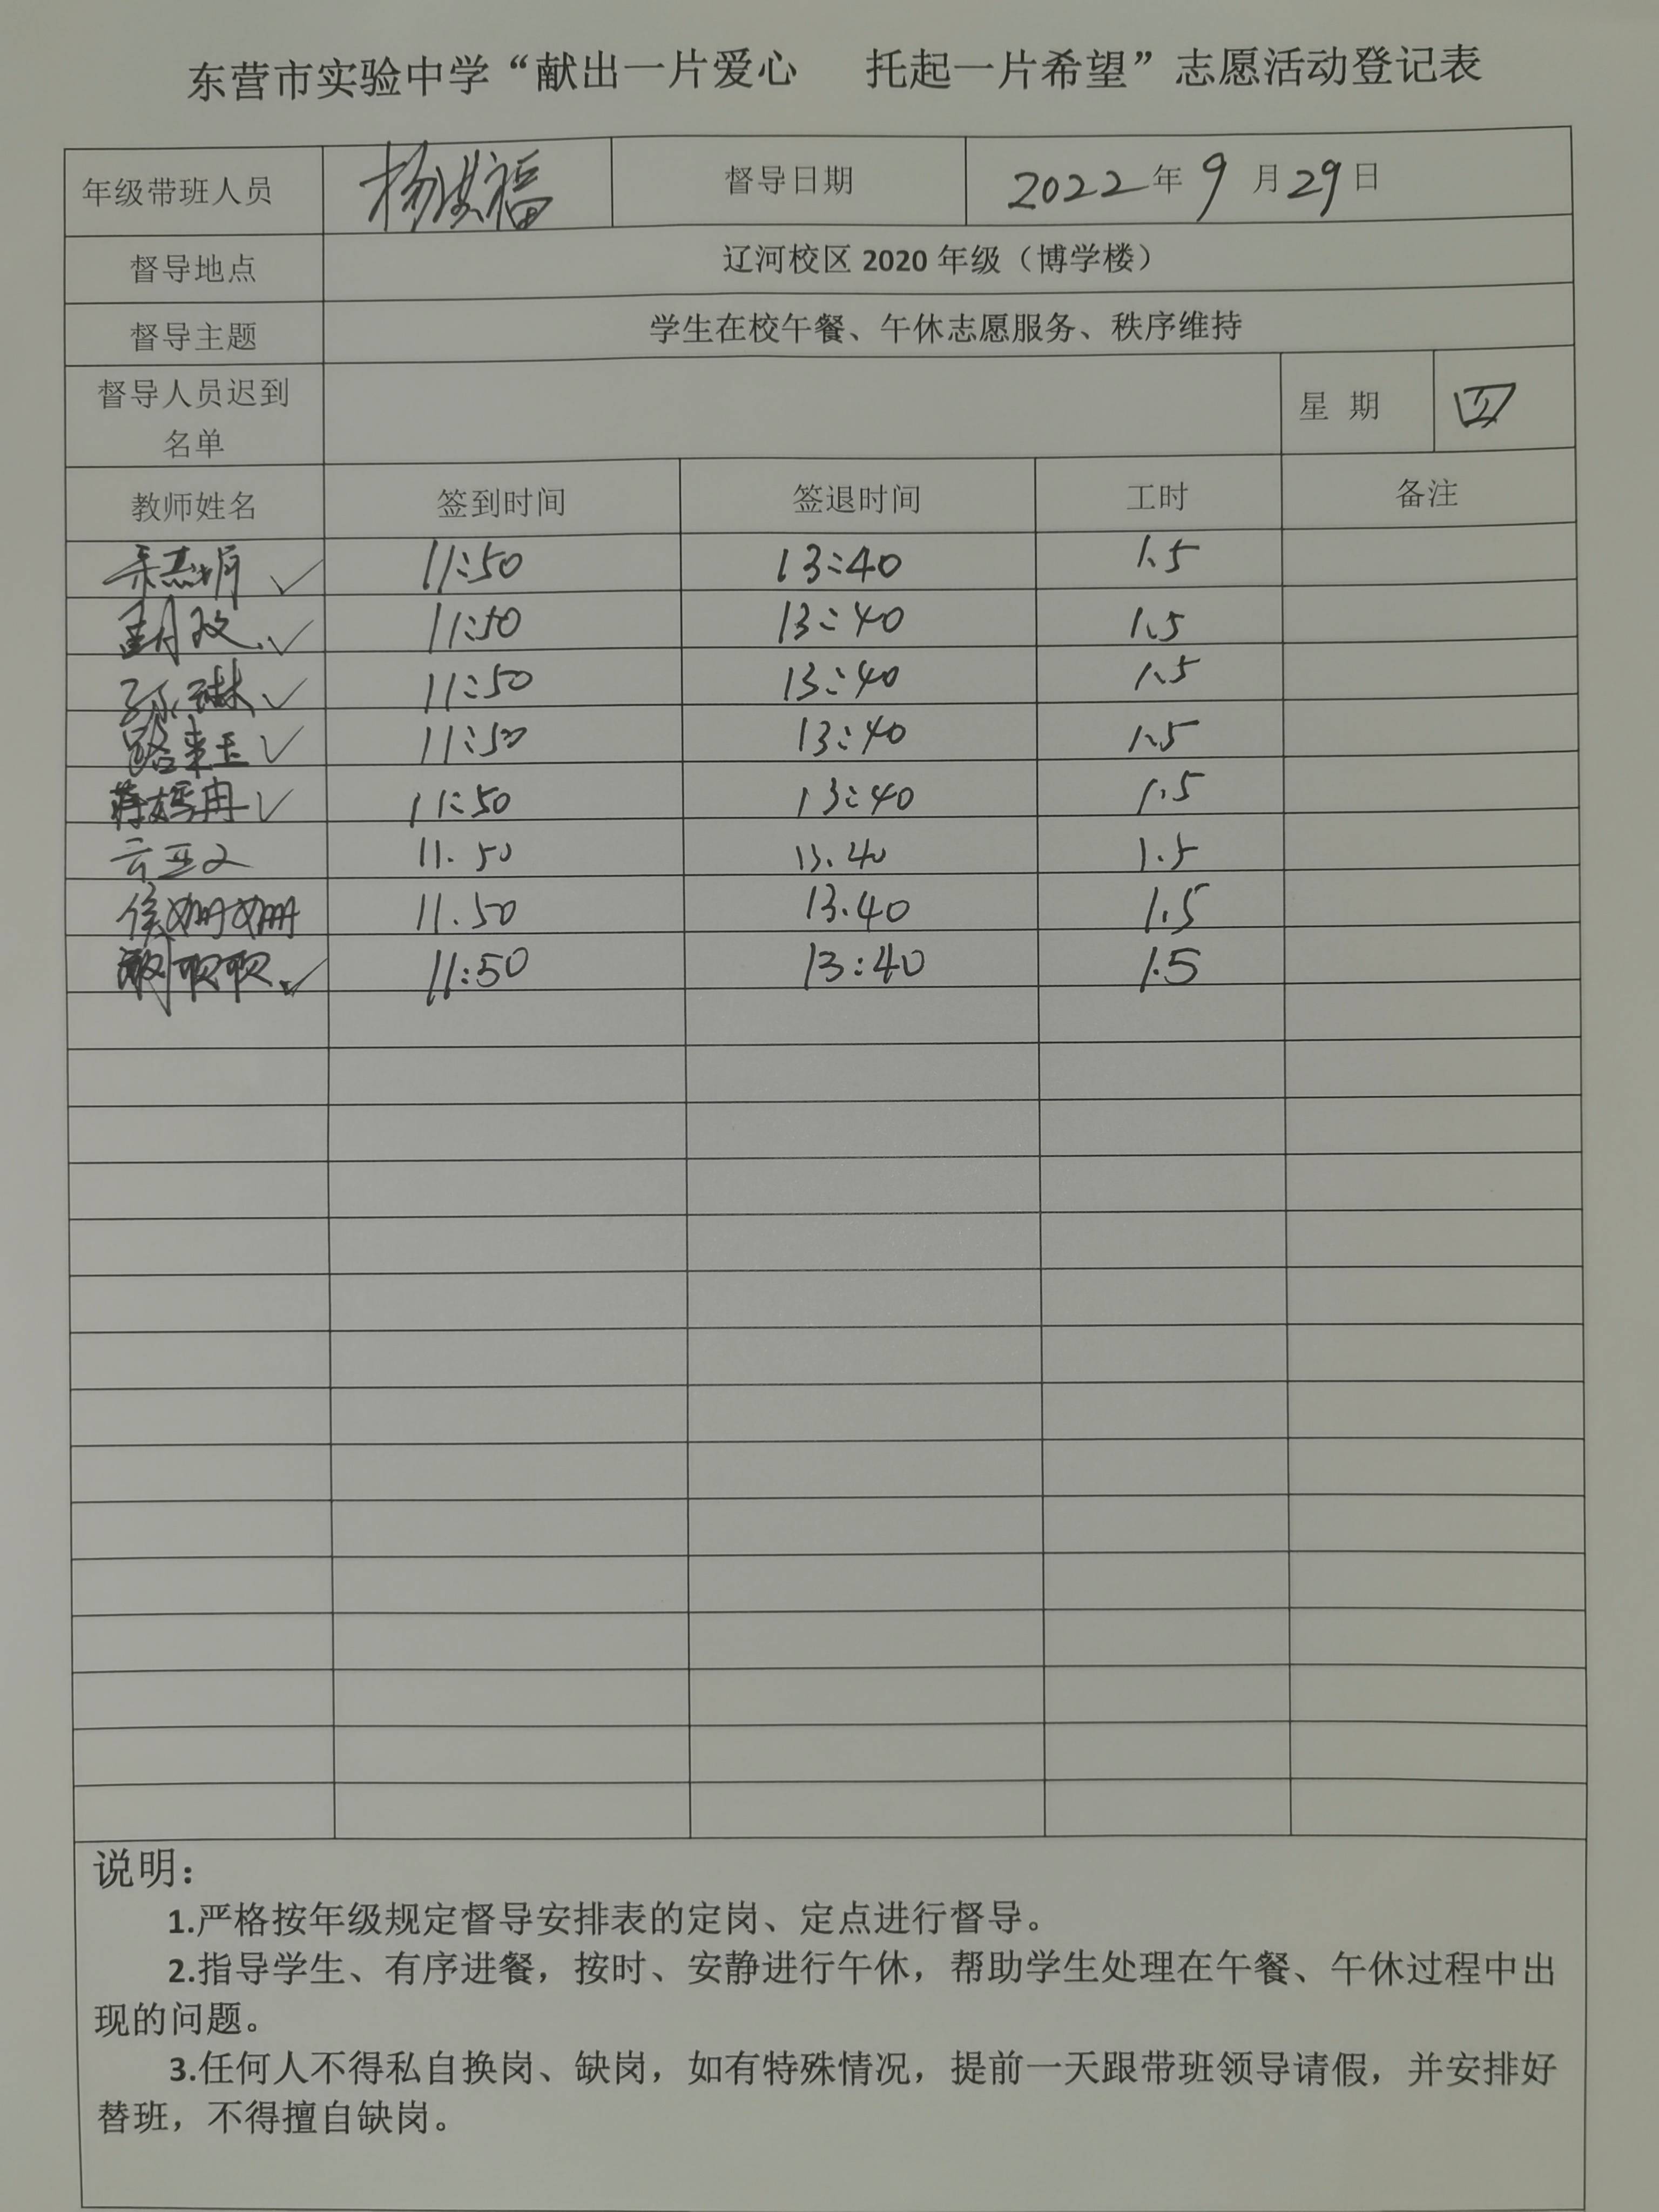 东营市实验中学“献出一片爱心 托起一片希望”志愿活动登记表
年级带班人员 杨洪福 督导日期 2022年9月29日
督导地点 辽河校区 2020 年级（博学楼）
督导主题 学生在校午餐、午休志愿服务、秩序维持
督导人员迟到
名单
星 期 四
教师姓名 签到时间 签退时间 工时 备注
✓ 11:50 13:40 1.5
✓ 11:50 13:40 1.5
孙琳 ✓ 11:50 13:40 1.5
路来玉 ✓ 11:50 13:40 1.5
蒋嫣冉 ✓ 11:50 13:40 1.5
11.50 13.40 1.5
侯姗姗 11.50 13.40 1.5
✓ 11:50 13:40 1.5
说明：
1.严格按年级规定督导安排表的定岗、定点进行督导。
2.指导学生、有序进餐，按时、安静进行午休，帮助学生处理在午餐、午休过程中出
现的问题。
3.任何人不得私自换岗、缺岗，如有特殊情况，提前一天跟带班领导请假，并安排好
替班，不得擅自缺岗。